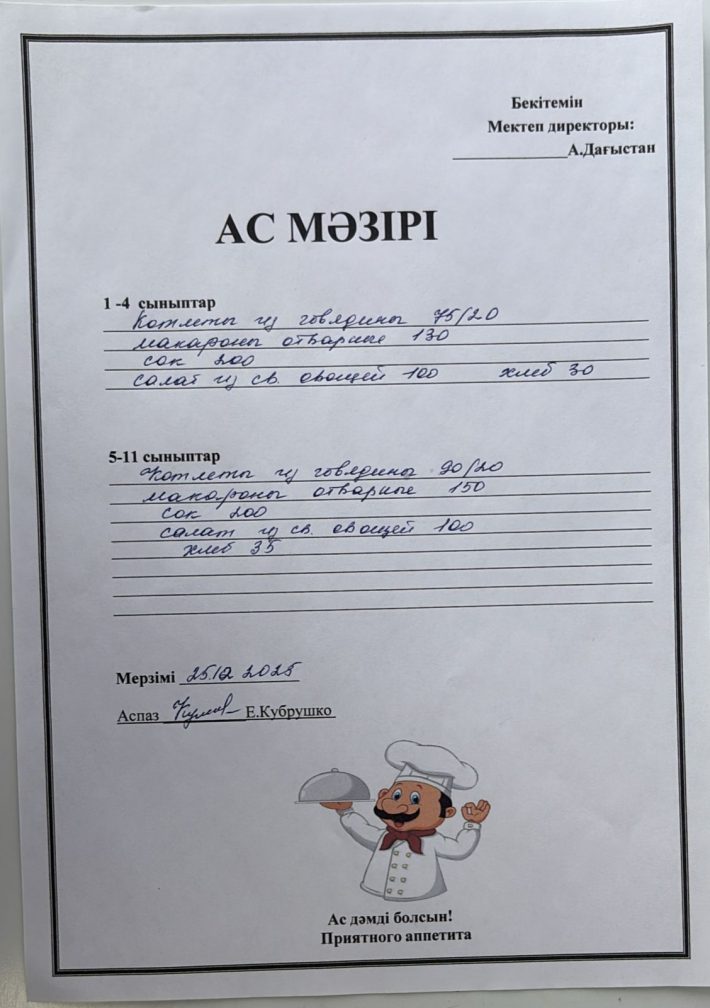 Бекітемін
Мектеп директоры:
______________А.Дағыстан
АС МӘЗІРІ
1 -4 сыныптар
Котлеты из говядины 75/20
макароны отварные 130
сок 200
салат из св. овощей 100 хлеб 30
5-11 сыныптар
Котлеты из говядины 90/20
макароны отварные 150
сок 200
салат из св. овощей 100
хлеб 35
Мерзімі 25.12 2025
Аспаз __________ Е.Кубрушко
Ас дәмді болсын!
Приятного аппетита